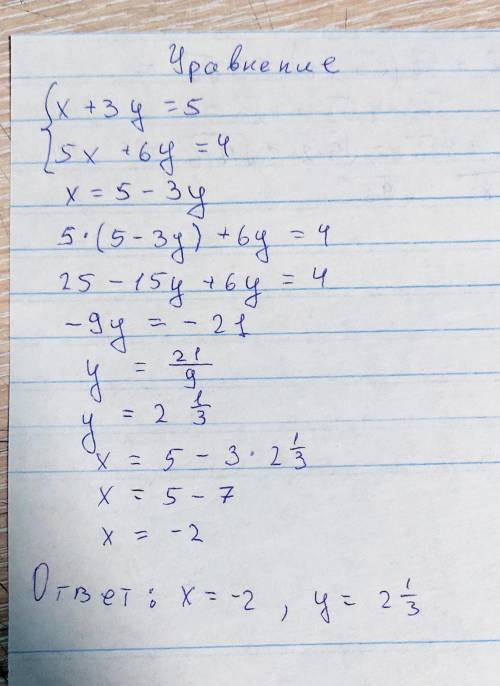 Уравнение
{ x + 3y = 5
5x + 6y = 4
x = 5 - 3y
5·(5 - 3y) + 6y = 4
25 - 15y + 6y = 4
-9y = -21
y = 21/9
y = 2 1/3
x = 5 - 3·2 1/3
x = 5 - 7
x = -2
Ответ: x = -2, y = 2 1/3